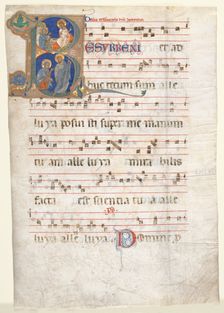 RESURREXI et ad
huc tecum sum alle
luya posuisti super me manum
tuam alle luya mira bilis
facta est scientia tua alle
luya alle luya Domine p